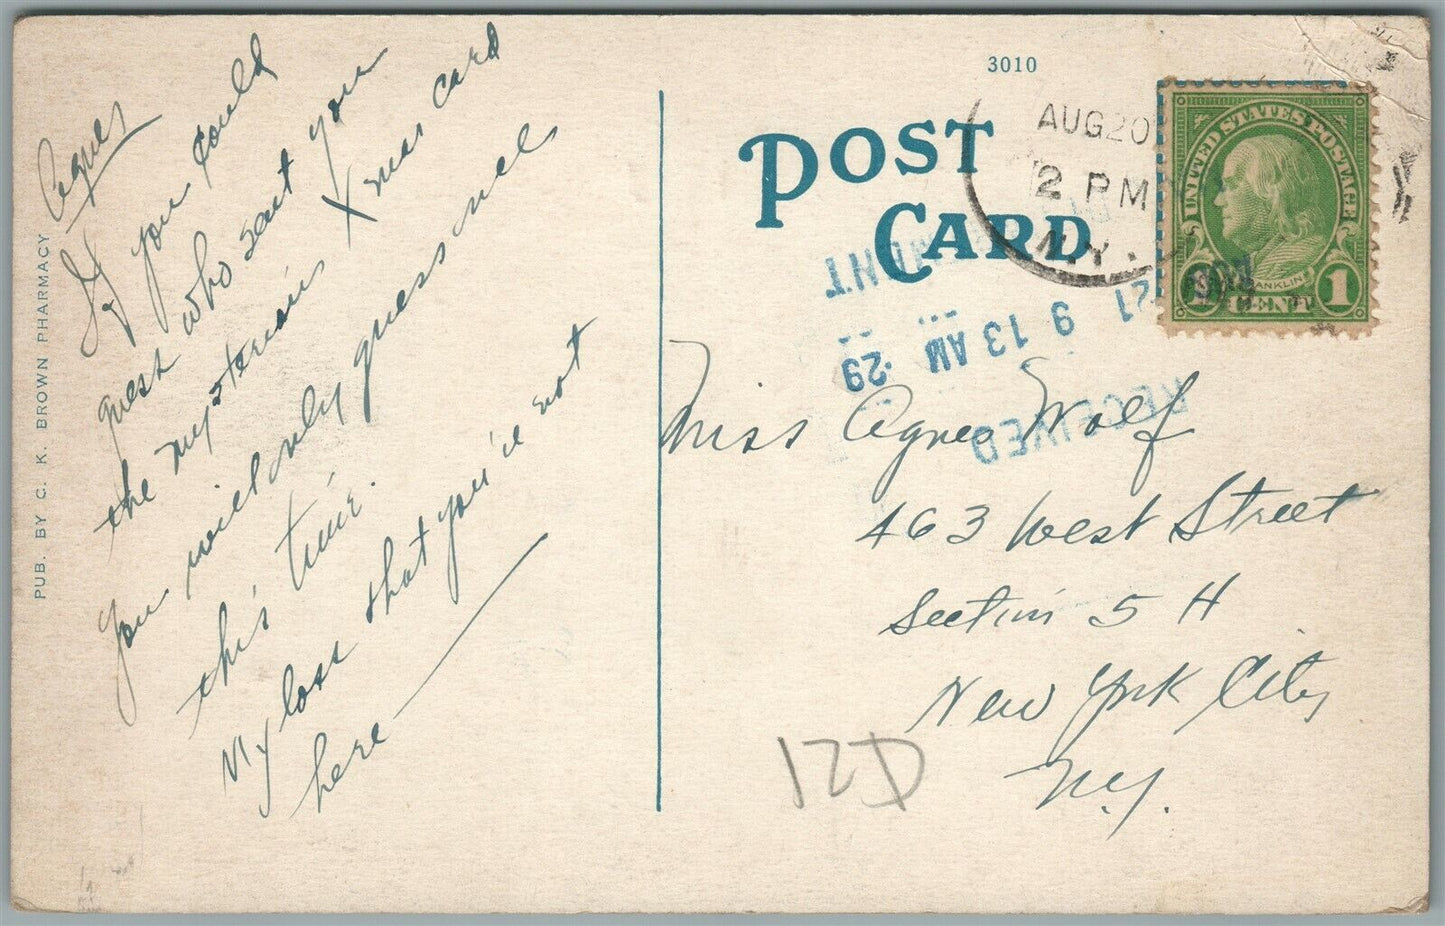 Agnes
If you could
guess who sent you
the mysterious Xmas card
You will only guess me
this time.
My loss that you're not
here
PUB. BY C. K. BROWN PHARMACY
3010
POST
CARD
AUG 20
2 PM
N.Y.
UNITED STATES POSTAGE
FRANKLIN
1 CENT 1
AUG
21 9 13 AM '29
RECEIVED
Miss Agnes Wolf
463 West Street
Section 5 H
New York City
N.Y.
12D